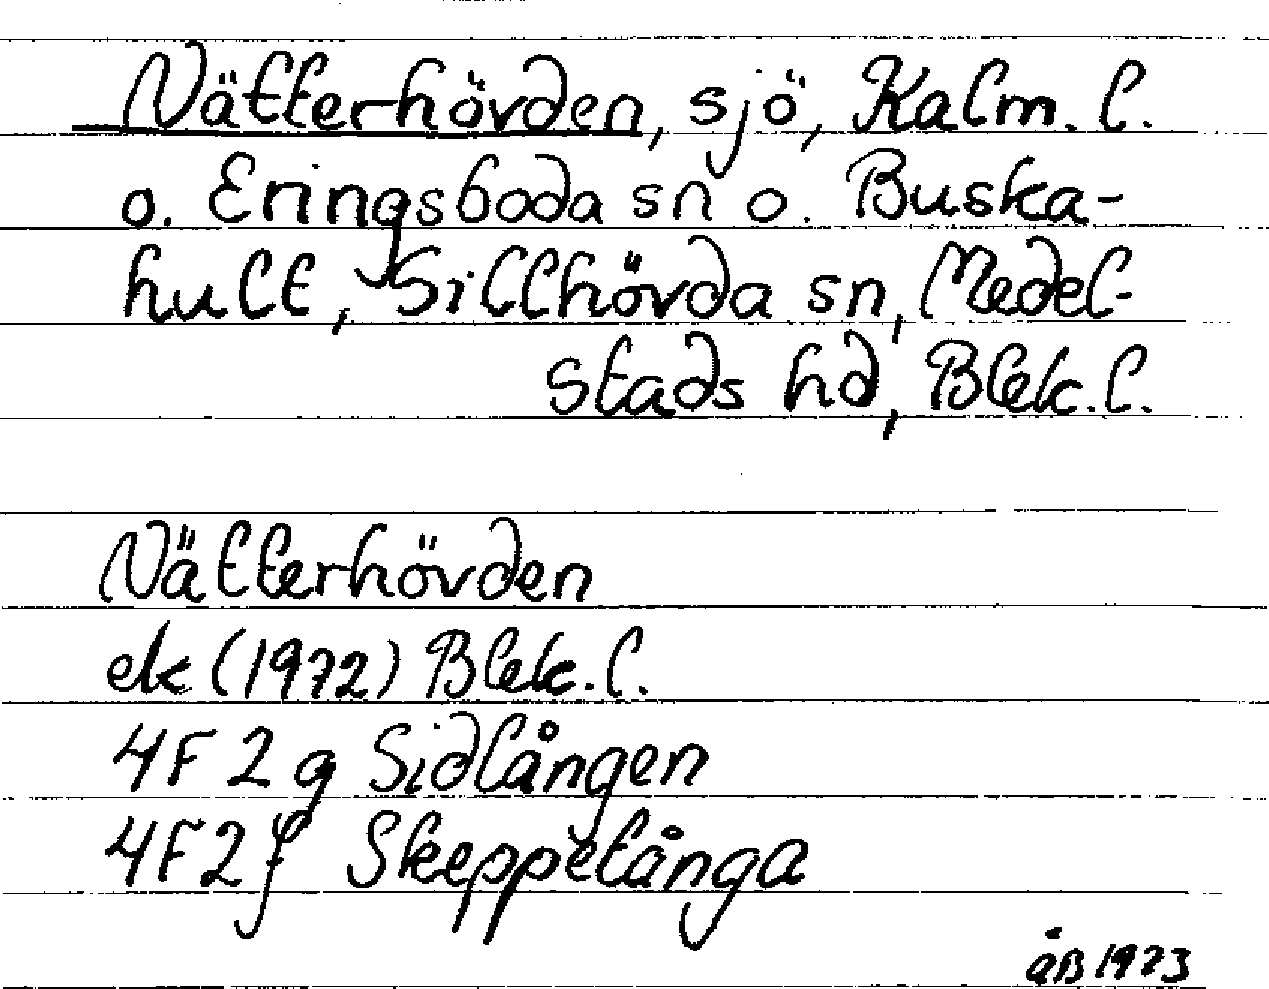 Nätterhövden, sjö, Kalm. l.
o. Eringsboda sn o. Buska-
hult, Sillhövda sn, Medel-
stads hd, Blek. l.
Nätterhövden
ek (1972) Blek. l.
4F 2g Sidlången
4F2f Skeppetånga
åB 1973